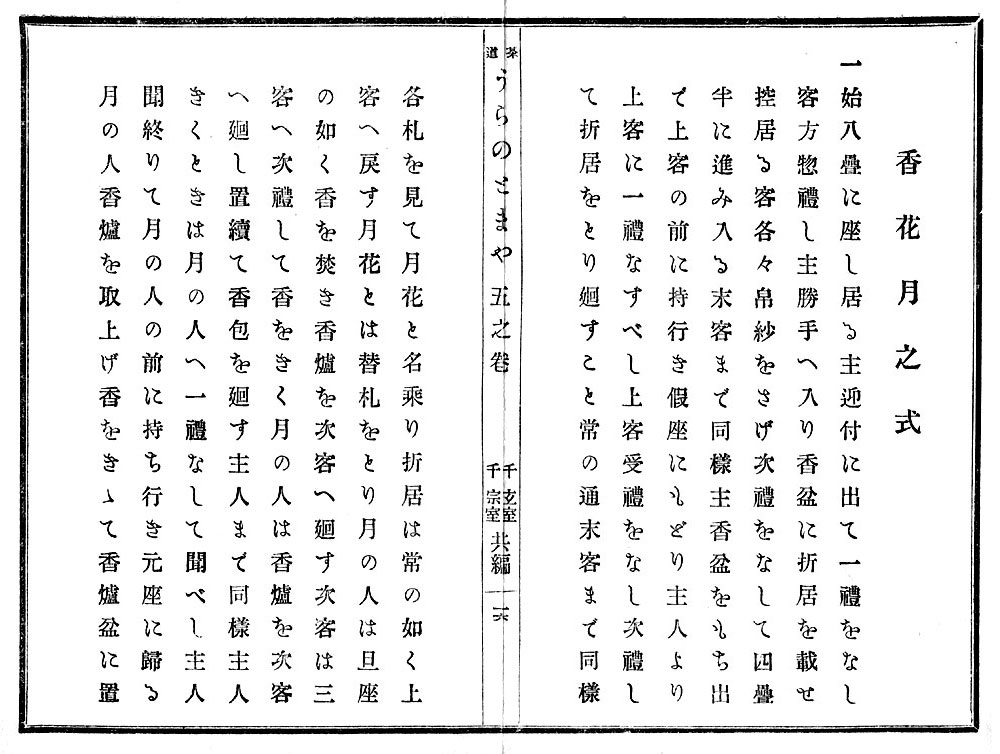 香花月之式
一始八疊に座し居る主迎付に出て一禮をなし
客方惣禮し主勝手へ入り香盆に折居を載せ
控居る客各々帛紗をさげ次禮をなして四疊
半に進み入る末客まで同樣主香盆をもち出
で上客の前に持行き假座にもどり主人より
上客に一禮なすべし上客受禮をなし次禮し
て折居をとり廻すこと常の通末客まで同樣
茶道
うらのとまや五之卷
千玄室
千宗室
共編
一六
各札を見て月花と名乘り折居は常の如く上
客へ戻す月花とは替札をとり月の人は旦座
の如く香を焚き香爐を次客へ廻す次客は三
客へ次禮して香をきく月の人は香爐を次客
へ廻し置續て香包を廻す主人まで同樣主人
きくときは月の人へ一禮なして聞べし主人
聞終りて月の人の前に持ち行き元座に歸る
月の人香爐を取上げ香をきゝて香爐盆に置